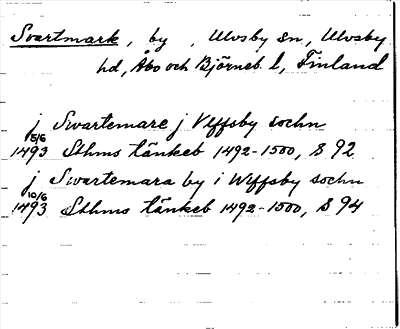 Svartmark, by, Ulvsby sn, Ulvsby
hd, Åbo och Björneb. l, Finland
j Swartemare j Vlffsby sochn
5/6
1493 Sthms tänkeb 1492-1500, S 92
j Swartemara by i Wlffsby sochn
10/6
1493 Sthms tänkeb 1492-1500, S 94